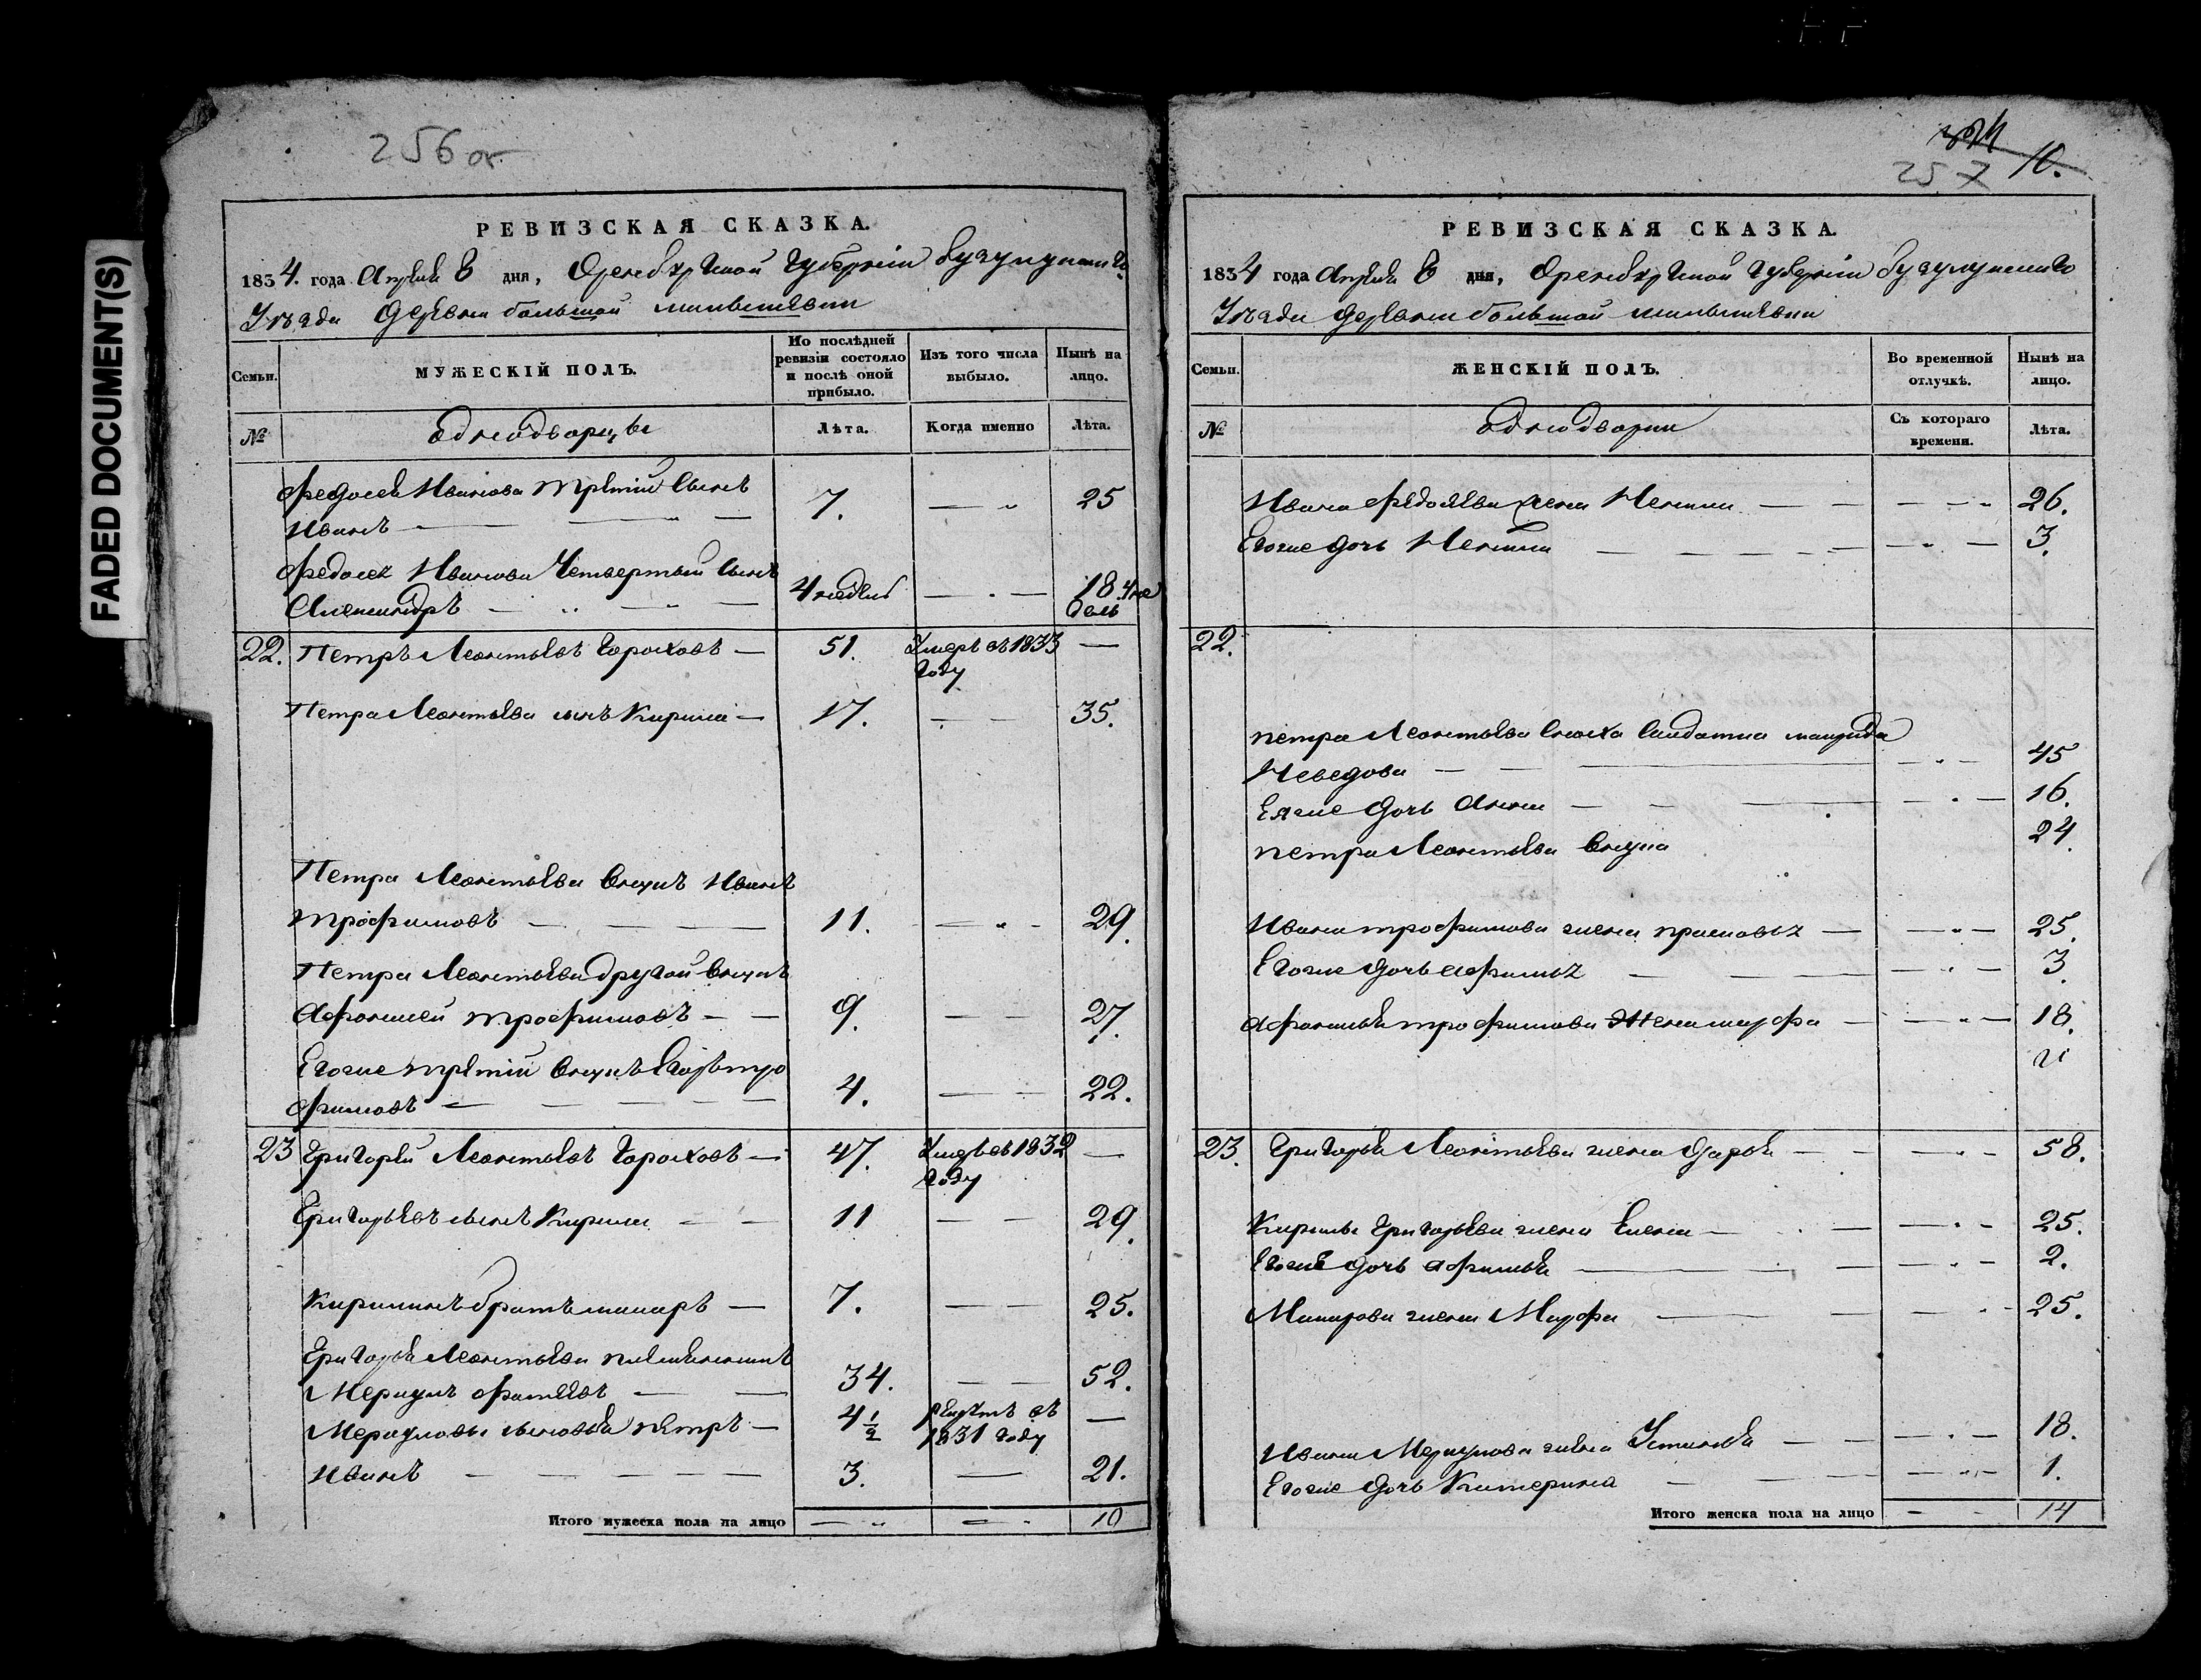 FADED DOCUMENT(S)
256 об
РЕВИЗСКАЯ СКАЗКА.
1834. года Апреля 8 дня, Оренбургской губернии Бузулукскаго
Уезда деревни большой
Семьи.
МУЖЕСКІЙ ПОЛЪ.
По послѣдней ревизіи состояло и послѣ оной прибыло.
Изъ того числа выбыло.
Нынѣ на лицо.
№
Однодворцы
Лѣта.
Когда именно
Лѣта.
Федосея Иванова третий сынъ
Иванъ — 7. — 25
Федосея Иванова Четвертый сынъ
Александръ — 4 недель — 18. 4 не
дель
22. Петръ Леонтьевъ Гороховъ — 51. Умеръ въ 1833 —
году
Петра Леонтьева сынъ Кирила — 17. — 35.
Петра Леонтьева внукъ Иванъ
трофимовъ — 11. — 29.
Петра Леонтьева другой внукъ
Афонасей трофимовъ — 9. — 27.
Егоже третий внукъ Егоръ тро
фимовъ — 4. — 22.
23 Григорей Леонтьевъ Гороховъ — 47. Умеръ въ 1832 —
году
Григорьевъ сынъ Кирила — 11 — 29.
Кирилинъ братъ макаръ — 7. — 25.
Григорья Леонтьева племянникъ
Меркулъ фатеевъ — 34. — 52.
Меркуловы сыновья петръ — 4 1/2 рекрутъ въ —
1831 году
Иванъ — 3. — 21.
Итого мужеска пола на лицо — 10
257 10.
РЕВИЗСКАЯ СКАЗКА.
1834 года Апреля 8 дня, Оренбургской губернии Бузулукскаго
Уезда деревни большой
Семьи.
ЖЕНСКІЙ ПОЛЪ.
Во временной отлучкѣ.
Нынѣ на лицо.
№
Однодворки
Съ котораго времени.
Лѣта.
Ивана федосеева жена Ненила — 26.
Егоже дочь Ненила — 3.
22.
петра Леонтьева сноха Салдатка
Нефедова — 45
Ея же дочь Анна — 16.
петра Леонтьева внука 24.
Ивана трофимова жена прасковья — 25.
Егоже дочь афимья — 3.
афонасья трофимова Жена марфа — 18.
23. Григорья Леонтьева жена дарья — 58.
Кирилы Григорьева жена Елена — 25.
Егоже дочь афимья — 2.
Макарова жена Марфа — 25.
Ивана Меркулова жена Устинья — 18.
Егоже дочь Катерина — 1.
Итого женска пола на лицо — 14